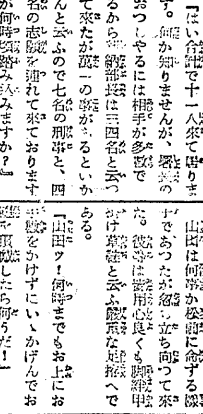 『はい合計で十一人來て居りま
す。何か知りませんが、署長の
おつしやるには相手が多數で
るから 納部長は三四名と云つ
て來たが萬一の事があるといか
んと云ふので七名の刑事と、四
名の志願を連れて來ております
が何時踏み込みますか？』
山田は何事か松前に命ずる樣
すであつたが忽ち立ち向つて來
た。彼等は要用心良くも脚絆甲
かけ草鞋と云ふ嚴重な足拵へで
ある。
『山田ツ！何時までもお上にお
手數をかけずにいゝかげんでお
を頂戴したら何うだ！』